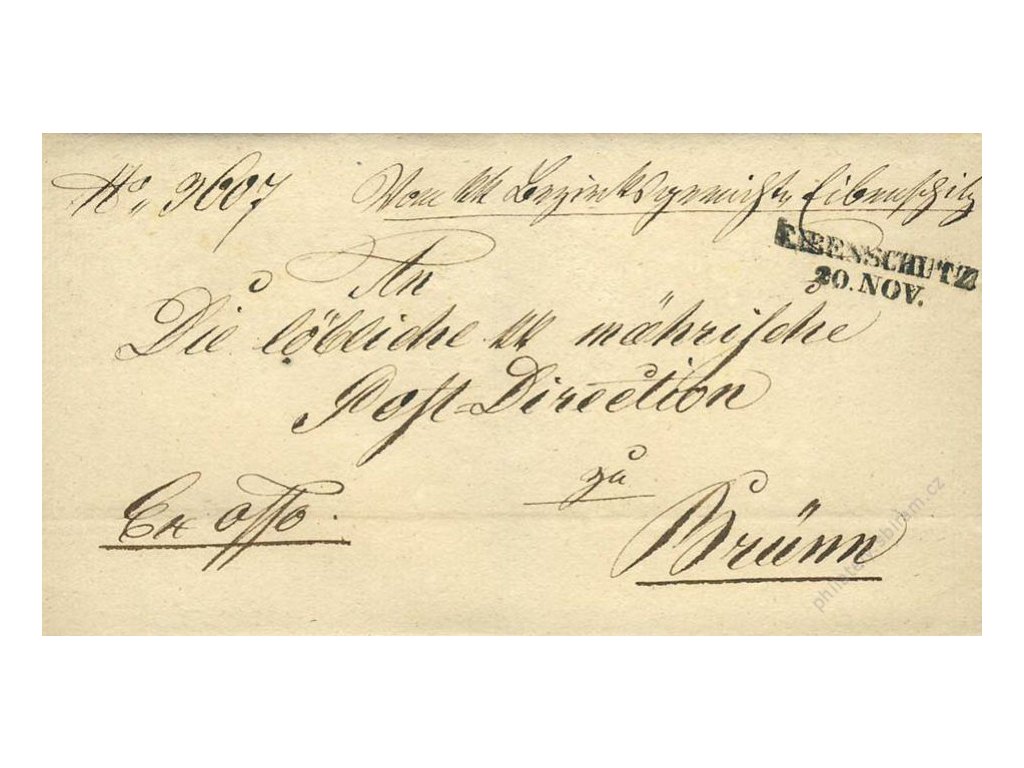 No. 3607 Vom kk Bezirksgerichte Eibenschitz
EIBENSCHÜTZ
20. NOV.
An
Die löbliche kk mährische
Post-Direction
zu
Ex offo.
Brünn